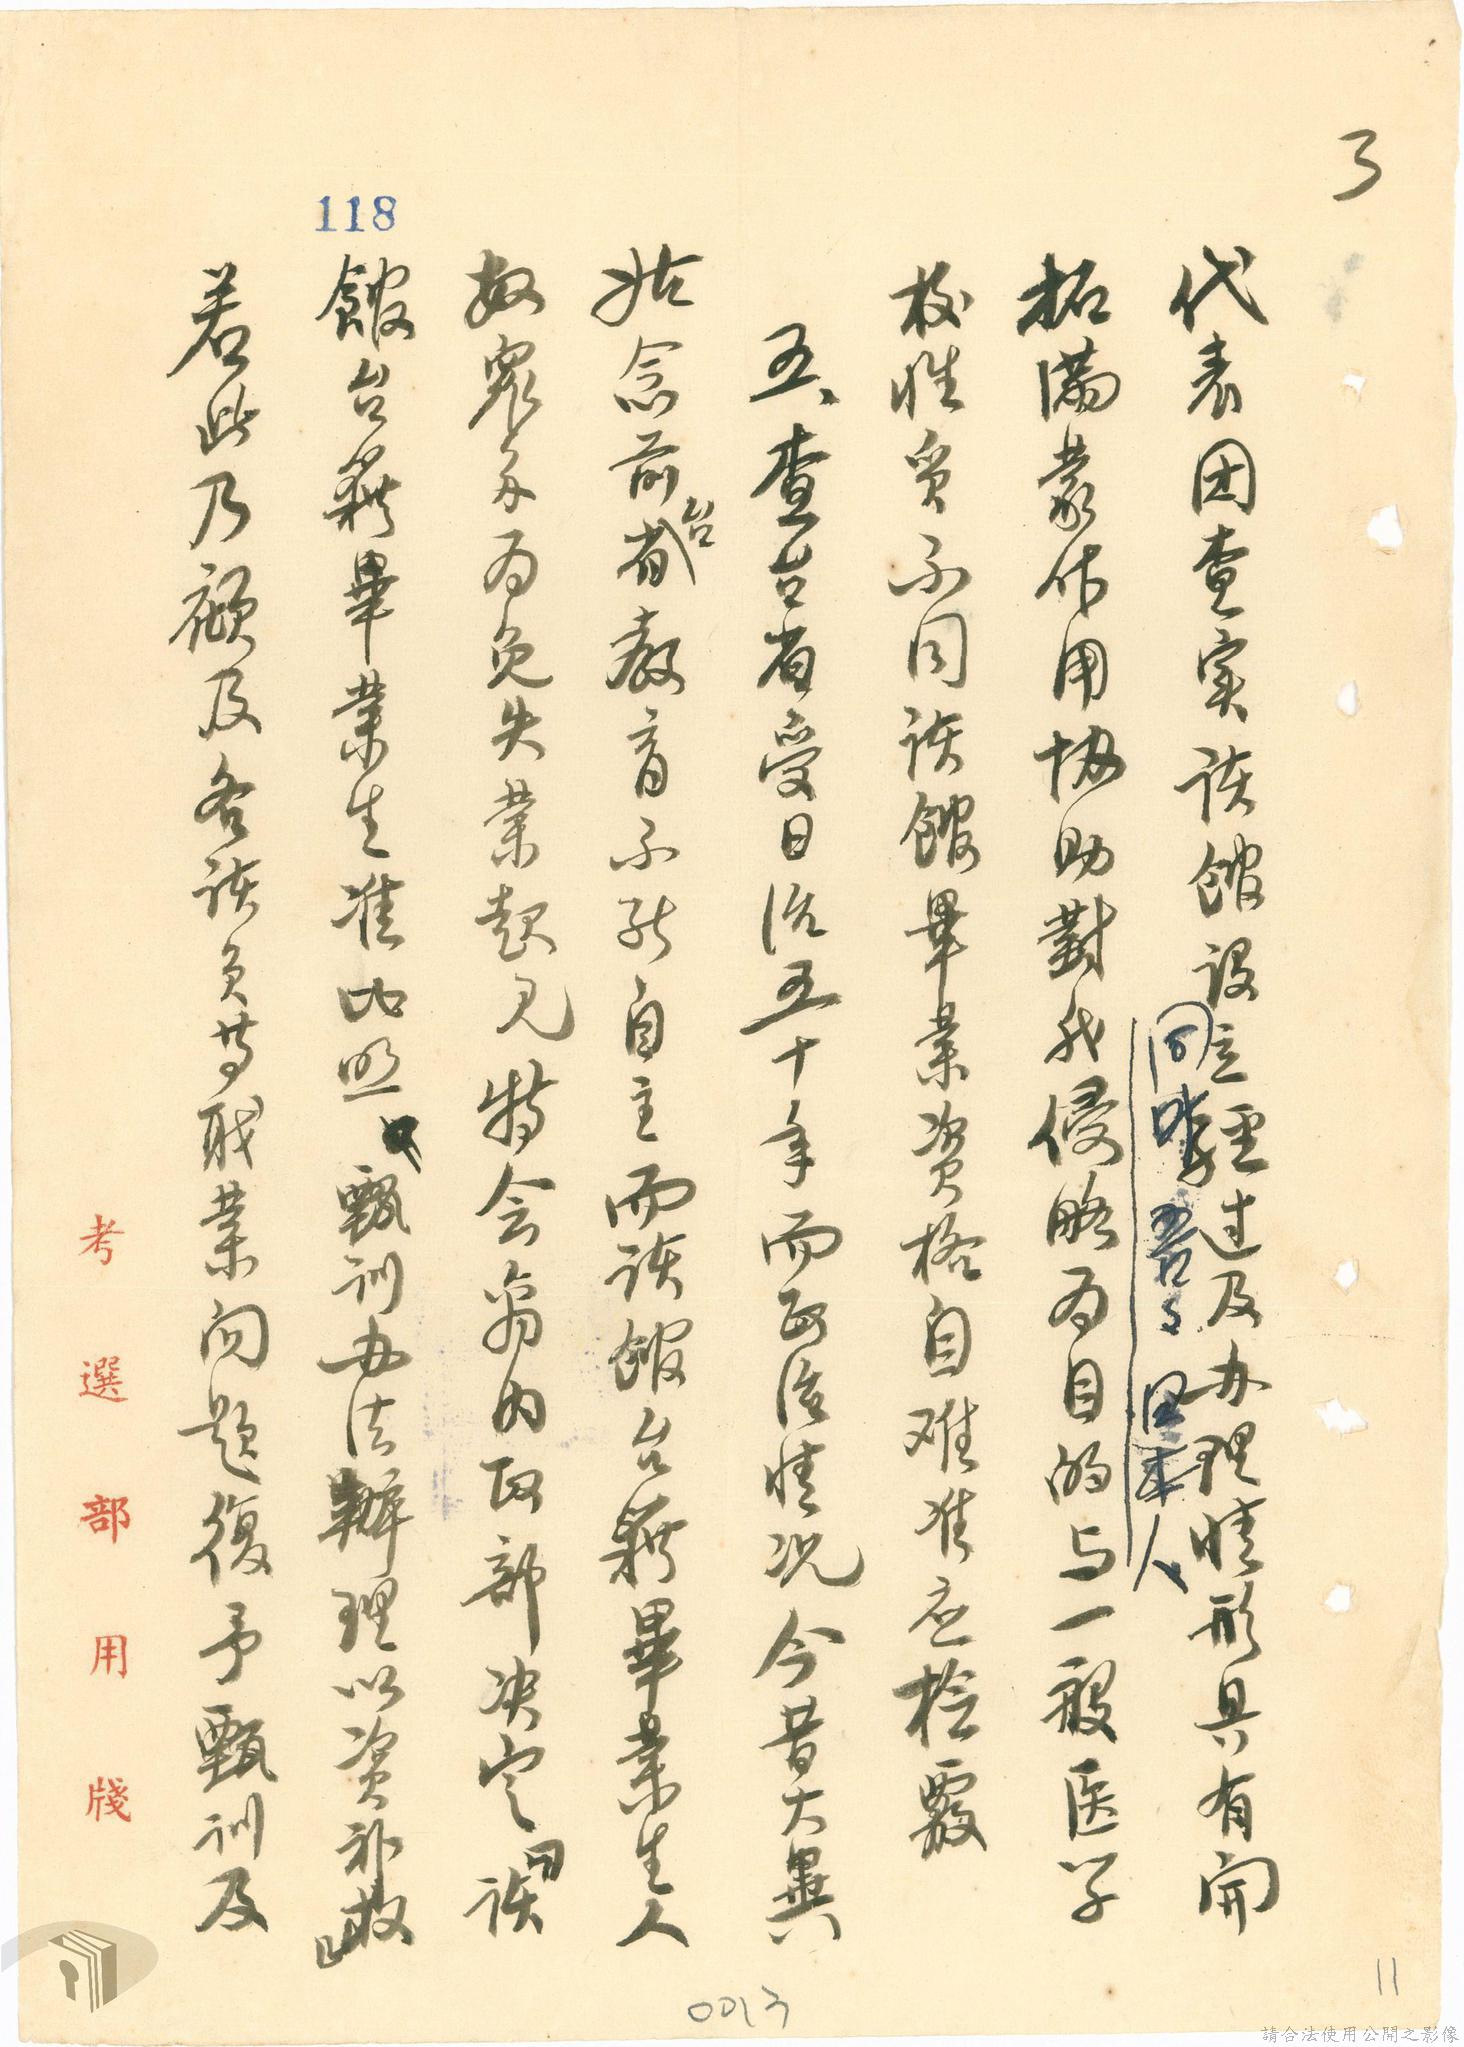 3
代表因查实該館設立經过及办理情形具有開
拓滿蒙作用协助對我侵略为目的与一般医学
校性質不同該館畢業資格自难准应检覈
五、查台省受日治五十年而政治情况今昔大異
姑念前台省教育不能自主而該館台籍畢業生人
数眾多为免失業起见特会商内政部决定「該
館台籍畢業生准比照甄训办法辦理以资补救」
若此乃顧及各該員等职業问题復予甄训及
118
考選部用牋
0013
11
請合法使用公開之影像